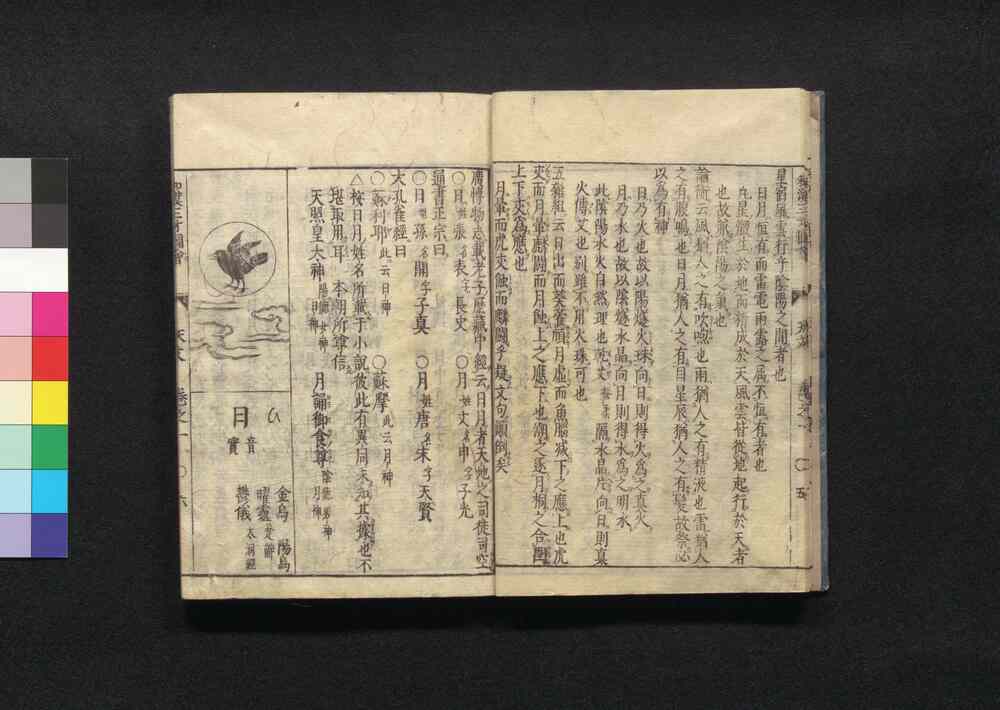 日月恒有而雷電雨露之屬不恒有者也
凡星皆生於地而精成於天風雲皆從地起行於天者
也故氣陰陽之氣也
論衡云風猶人之有吹喣也雨猶人之有精液也雷猶人
之有腹鳴也日月猶人之有目星辰猶人之有髮故祭必
以為有神
日乃火也故以陽燧火珠向日則得火為之真火
月乃水也故以陰燧水晶向日則得水為之明水
此陰陽水火自然理也
隔水晶片向日則真
火傳艾也別雖不用火珠可也
五雜組云日出而葵藿傾月虛而魚腦減下之應上也虎
交而月暈麟鬪而日蝕上之應下也潮之逐月桐之合閏
上下交為應也
月暈而虎交蝕而麟鬪乎疑文句顛倒矣
廣博物志載老子歷藏中經云日月者天地之司徒司空
〇日姓張名表字長史 〇月姓文名申字子光
通書正宗曰
〇日姓孫名開字子真 〇月姓唐名末字天賢
大孔雀經曰
〇蘇利耶此云日神 〇蘇摩此云月神
△按日月姓名所載于小說彼此有異同未知其據也不
堪取用耳 本朝所尊信
天照皇大神 陽德女神日神
月誦御食尊 陰德男神月神
日
音
實
ひ
金烏 陽烏
曜靈 楚辭
鬱儀 太洞經
和漢三才圖會
天文
卷之一
〇六
〇五